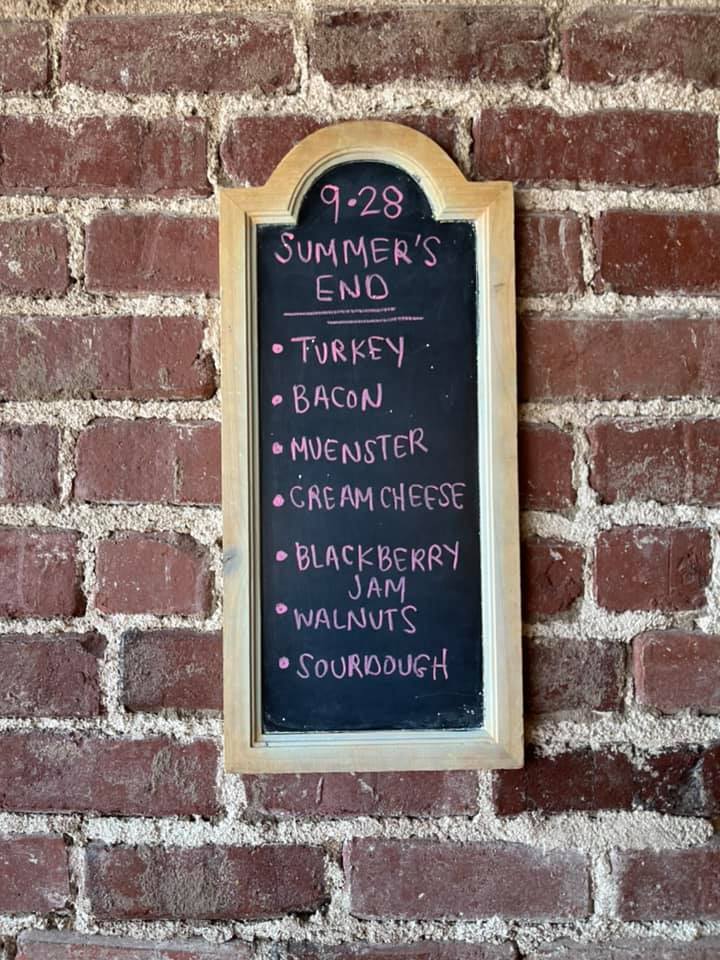 9•28
SUMMER'S
END
• TURKEY
• BACON
• MUENSTER
• CREAM CHEESE
• BLACKBERRY
JAM
• WALNUTS
• SOURDOUGH